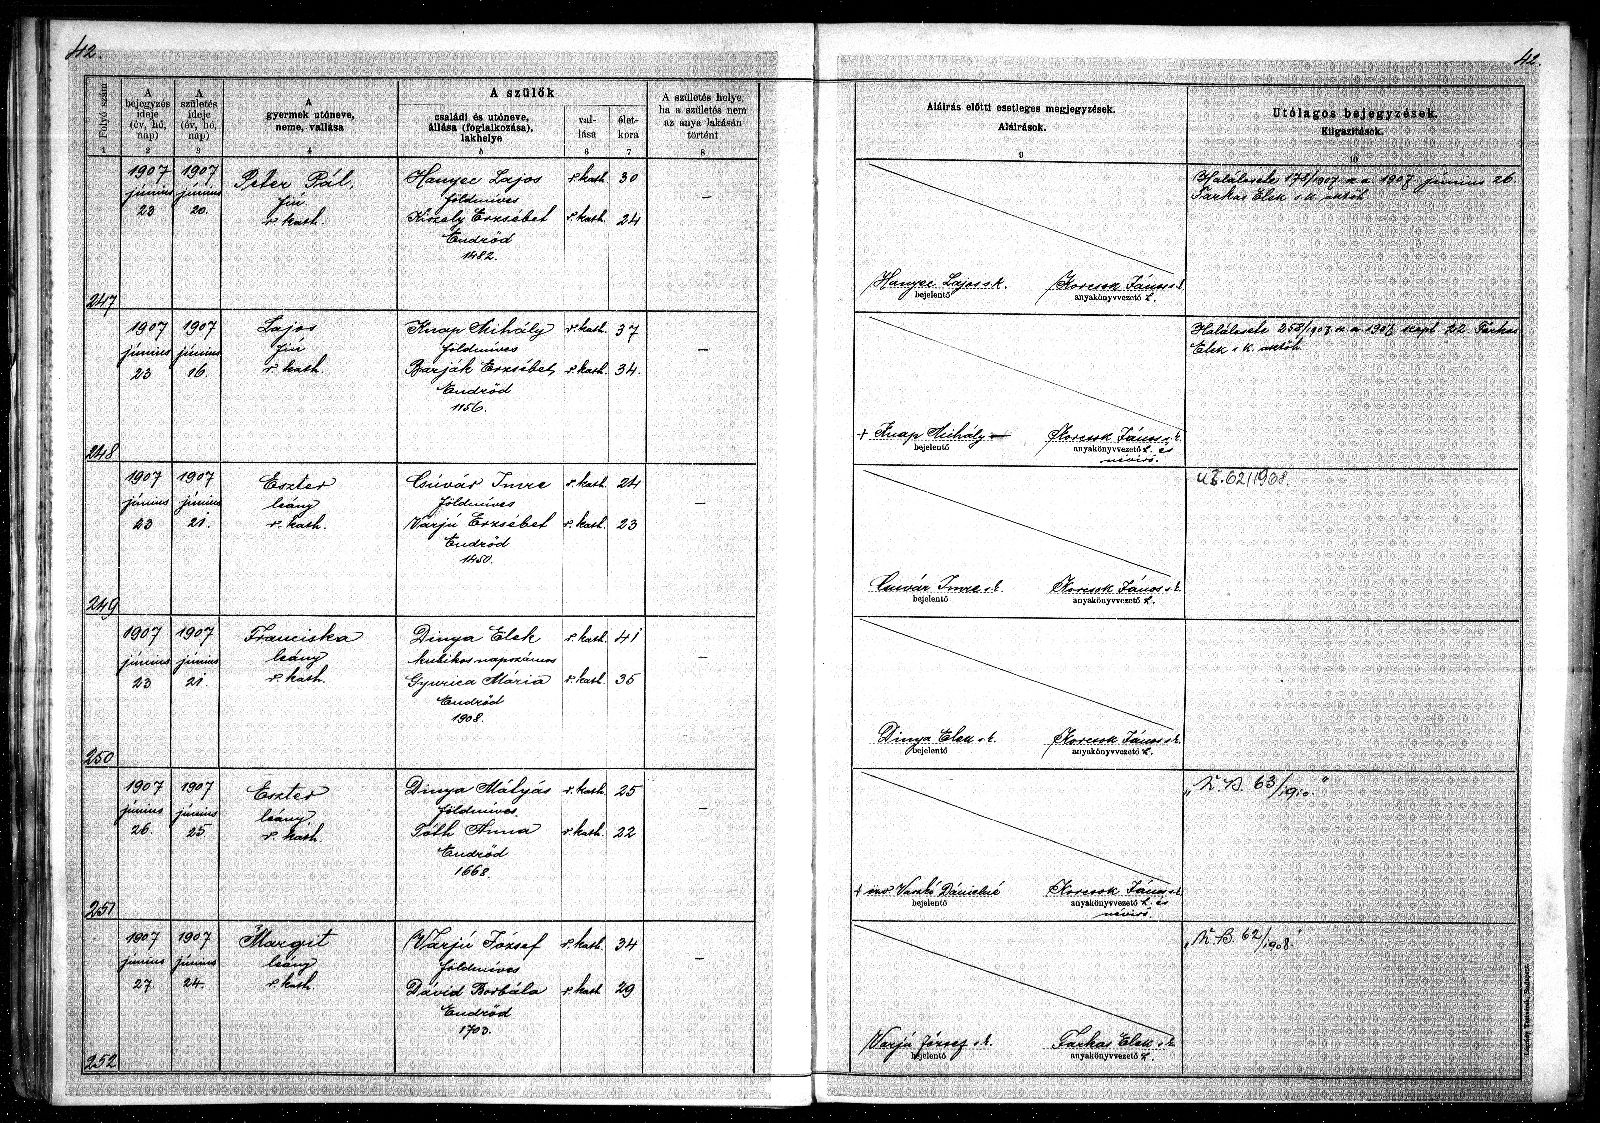 42.
42.
Folyó szám
A bejegyzés ideje (év, hó, nap)
A születés ideje (év, hó, nap)
A gyermek utóneve, neme, vallása
A szülők
családi és utóneve, állása (foglalkozása), lakhelye
vallása
életkora
A születés helye, ha a születés nem az anya lakásán történt
Aláírás előtti esetleges megjegyzések.
Aláírások.
Utólagos bejegyzések.
Kiigazítások.
1 2 3 4 5 6 7 8 9 10
247
1907 június 23
1907 június 20.
Péter Pál,
fiú
r. kath.
Hanyec Lajos r. kath. 30
földmíves
Kiszely Erzsébet r. kath. 24
Endrőd
1482.
—
Hanyec Lajos s. k.
bejelentő
Korcsok János s. k.
anyakönyvvezető h.
Halálesete 178/1907 a. a. 1907. június 26.
Farkas Elek s. k. aktőh
248
1907 június 23
1907 június 16.
Lajos
fiú
r. kath.
Knap Mihály r. kath. 37
földmíves
Barják Erzsébet, r. kath. 34.
Endrőd
1156.
—
+ Knap Mihály
bejelentő
Korcsok János s. k.
anyakönyvvezető h. és
névíró.
Halálesete 258/1907 a. a. 1907 szept 22 Farkas
Elek s. k. aktőh
249
1907 június 23
1907 június 21.
Eszter
leány
r. kath.
Csúvár Imre r. kath. 24
földmíves
Varjú Erzsébet r. kath. 23
Endrőd
1450.
—
Csuvár Imre s. k.
bejelentő
Korcsok János s. k.
anyakönyvvezető h.
62/1908.
250
1907 június 23
1907 június 21.
Franciska
leány
r. kath.
Dinya Elek r. kath. 41
kubikos napszámos
Gyurica Mária r. kath. 35
Endrőd
1908.
—
Dinya Elek s. k.
bejelentő
Korcsok János s. k.
anyakönyvvezető h.
251
1907 június 26.
1907 június 25
Eszter
leány
r. kath.
Dinya Mátyás r. kath. 25
földmíves
Tóth Anna r. kath. 22
Endrőd
1668.
—
+ özv. Vaszkó Dánielné
bejelentő
Korcsok János s. k.
anyakönyvvezető h. és
névíró.
„U. B. 63/1910.”
252
1907 június 27
1907 június 24.
Margit
leány
r. kath.
Varjú József r. kath. 34
földmíves
Dávid Borbála r. kath 29
Endrőd
1703.
—
Varjú József s. k.
bejelentő
Farkas Elek s. k.
anyakönyvvezető h.
„U. B. 62/1908.”